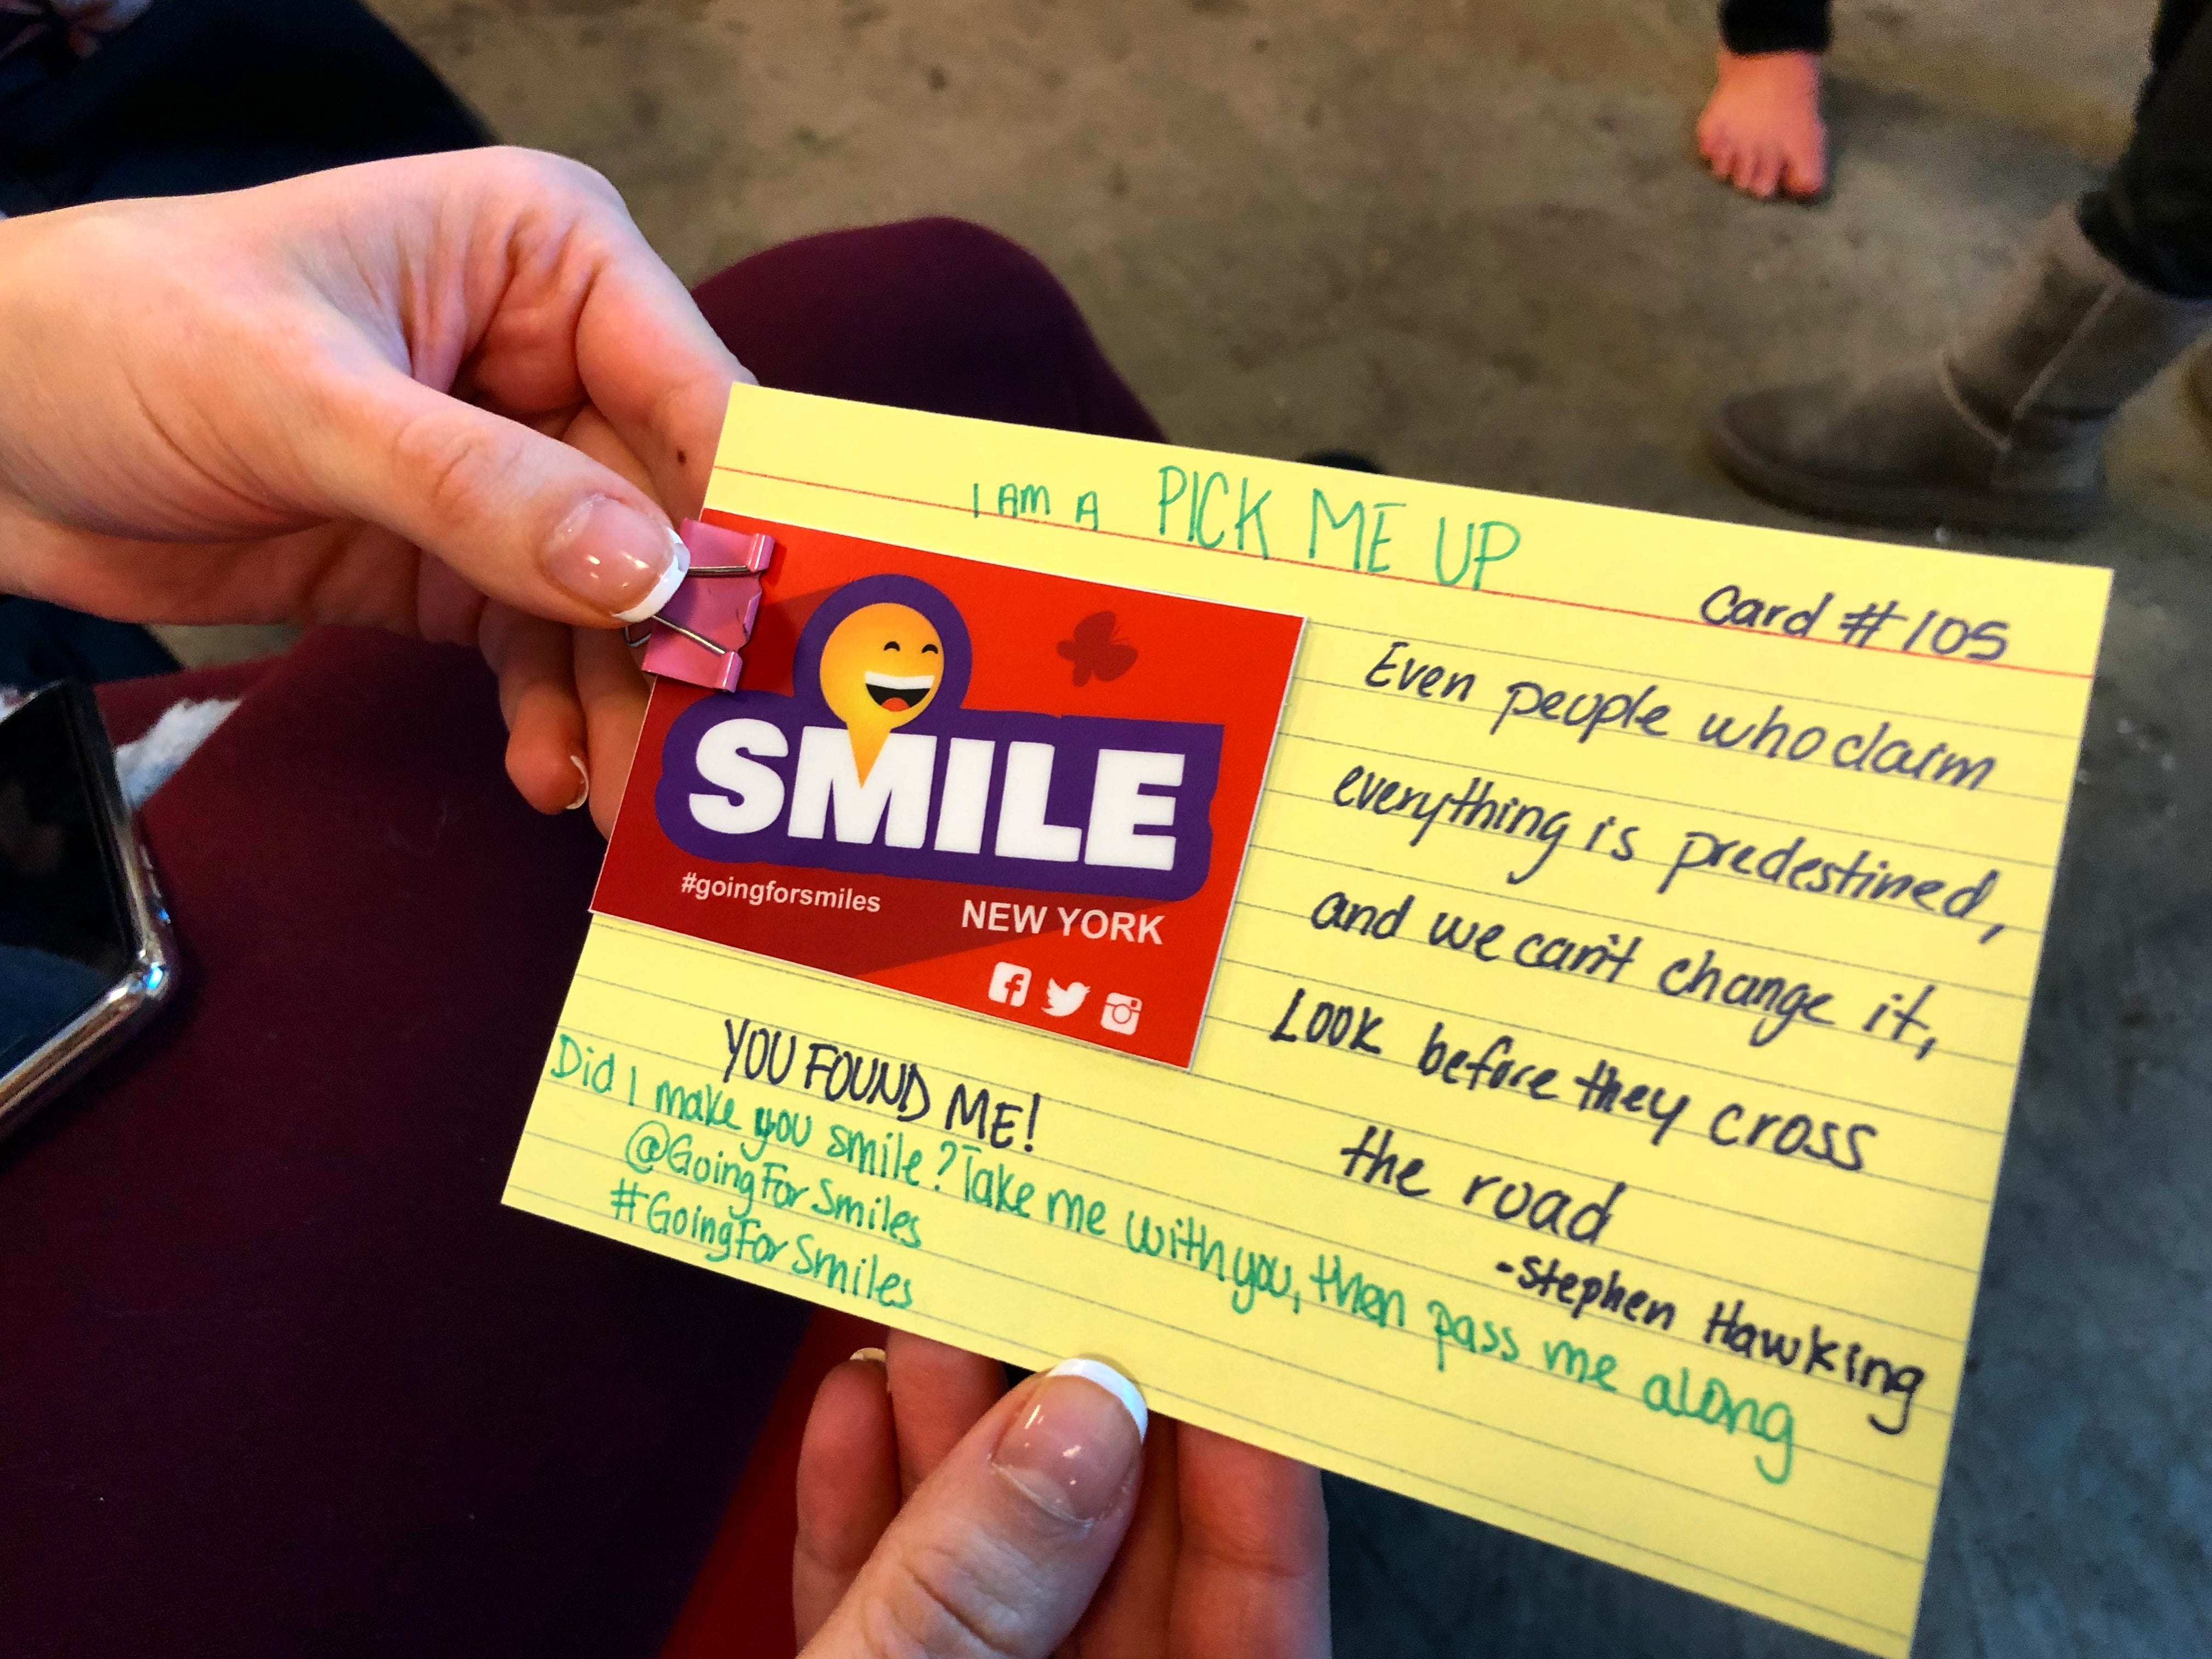 I AM A PICK ME UP
Card #105
SMILE
#goingforsmiles
NEW YORK
Even people who claim
everything is predestined,
and we can't change it,
Look before they cross
the road
-Stephen Hawking
YOU FOUND ME!
Did I make you smile? Take me with you, then pass me along
@GoingForSmiles
#GoingForSmiles